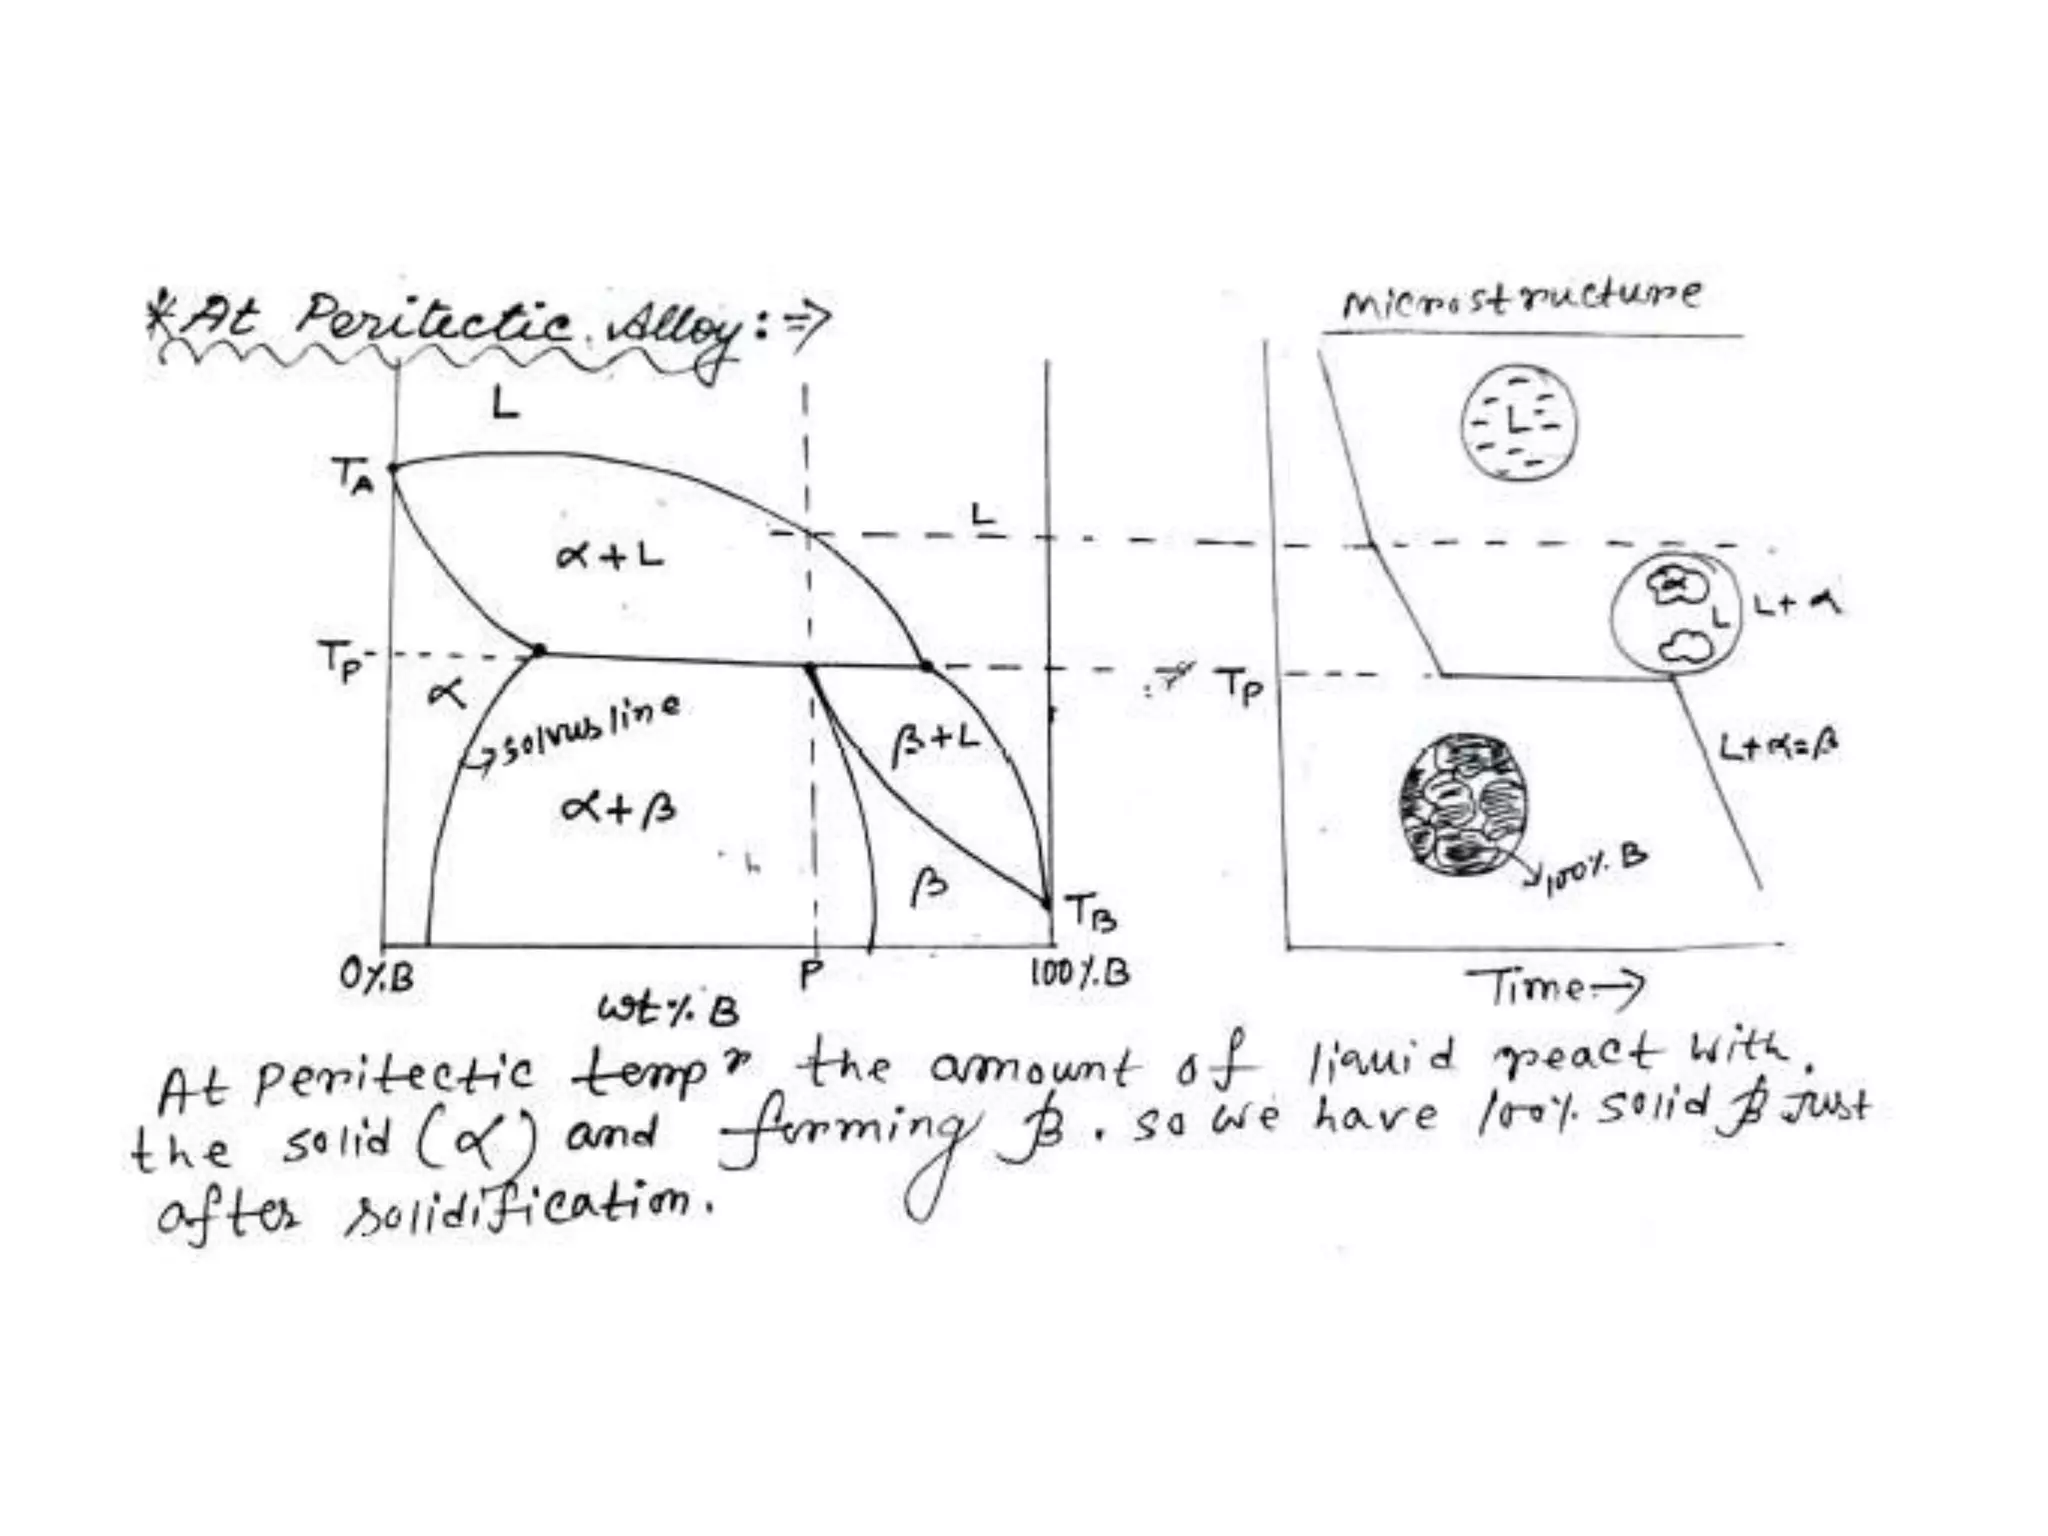 *At Peritectic Alloy :⇒
microstructure
L
L
TA
L
α+L
α
L
L+α
TP
TP
α
solvus line
β+L
L+α=β
α+β
β
100% B
TB
0%B
P
100%B
wt% B
Time→
At peritectic tempr the amount of liquid react with
the solid (α) and forming β. so we have 100% solid β Just
after solidification.